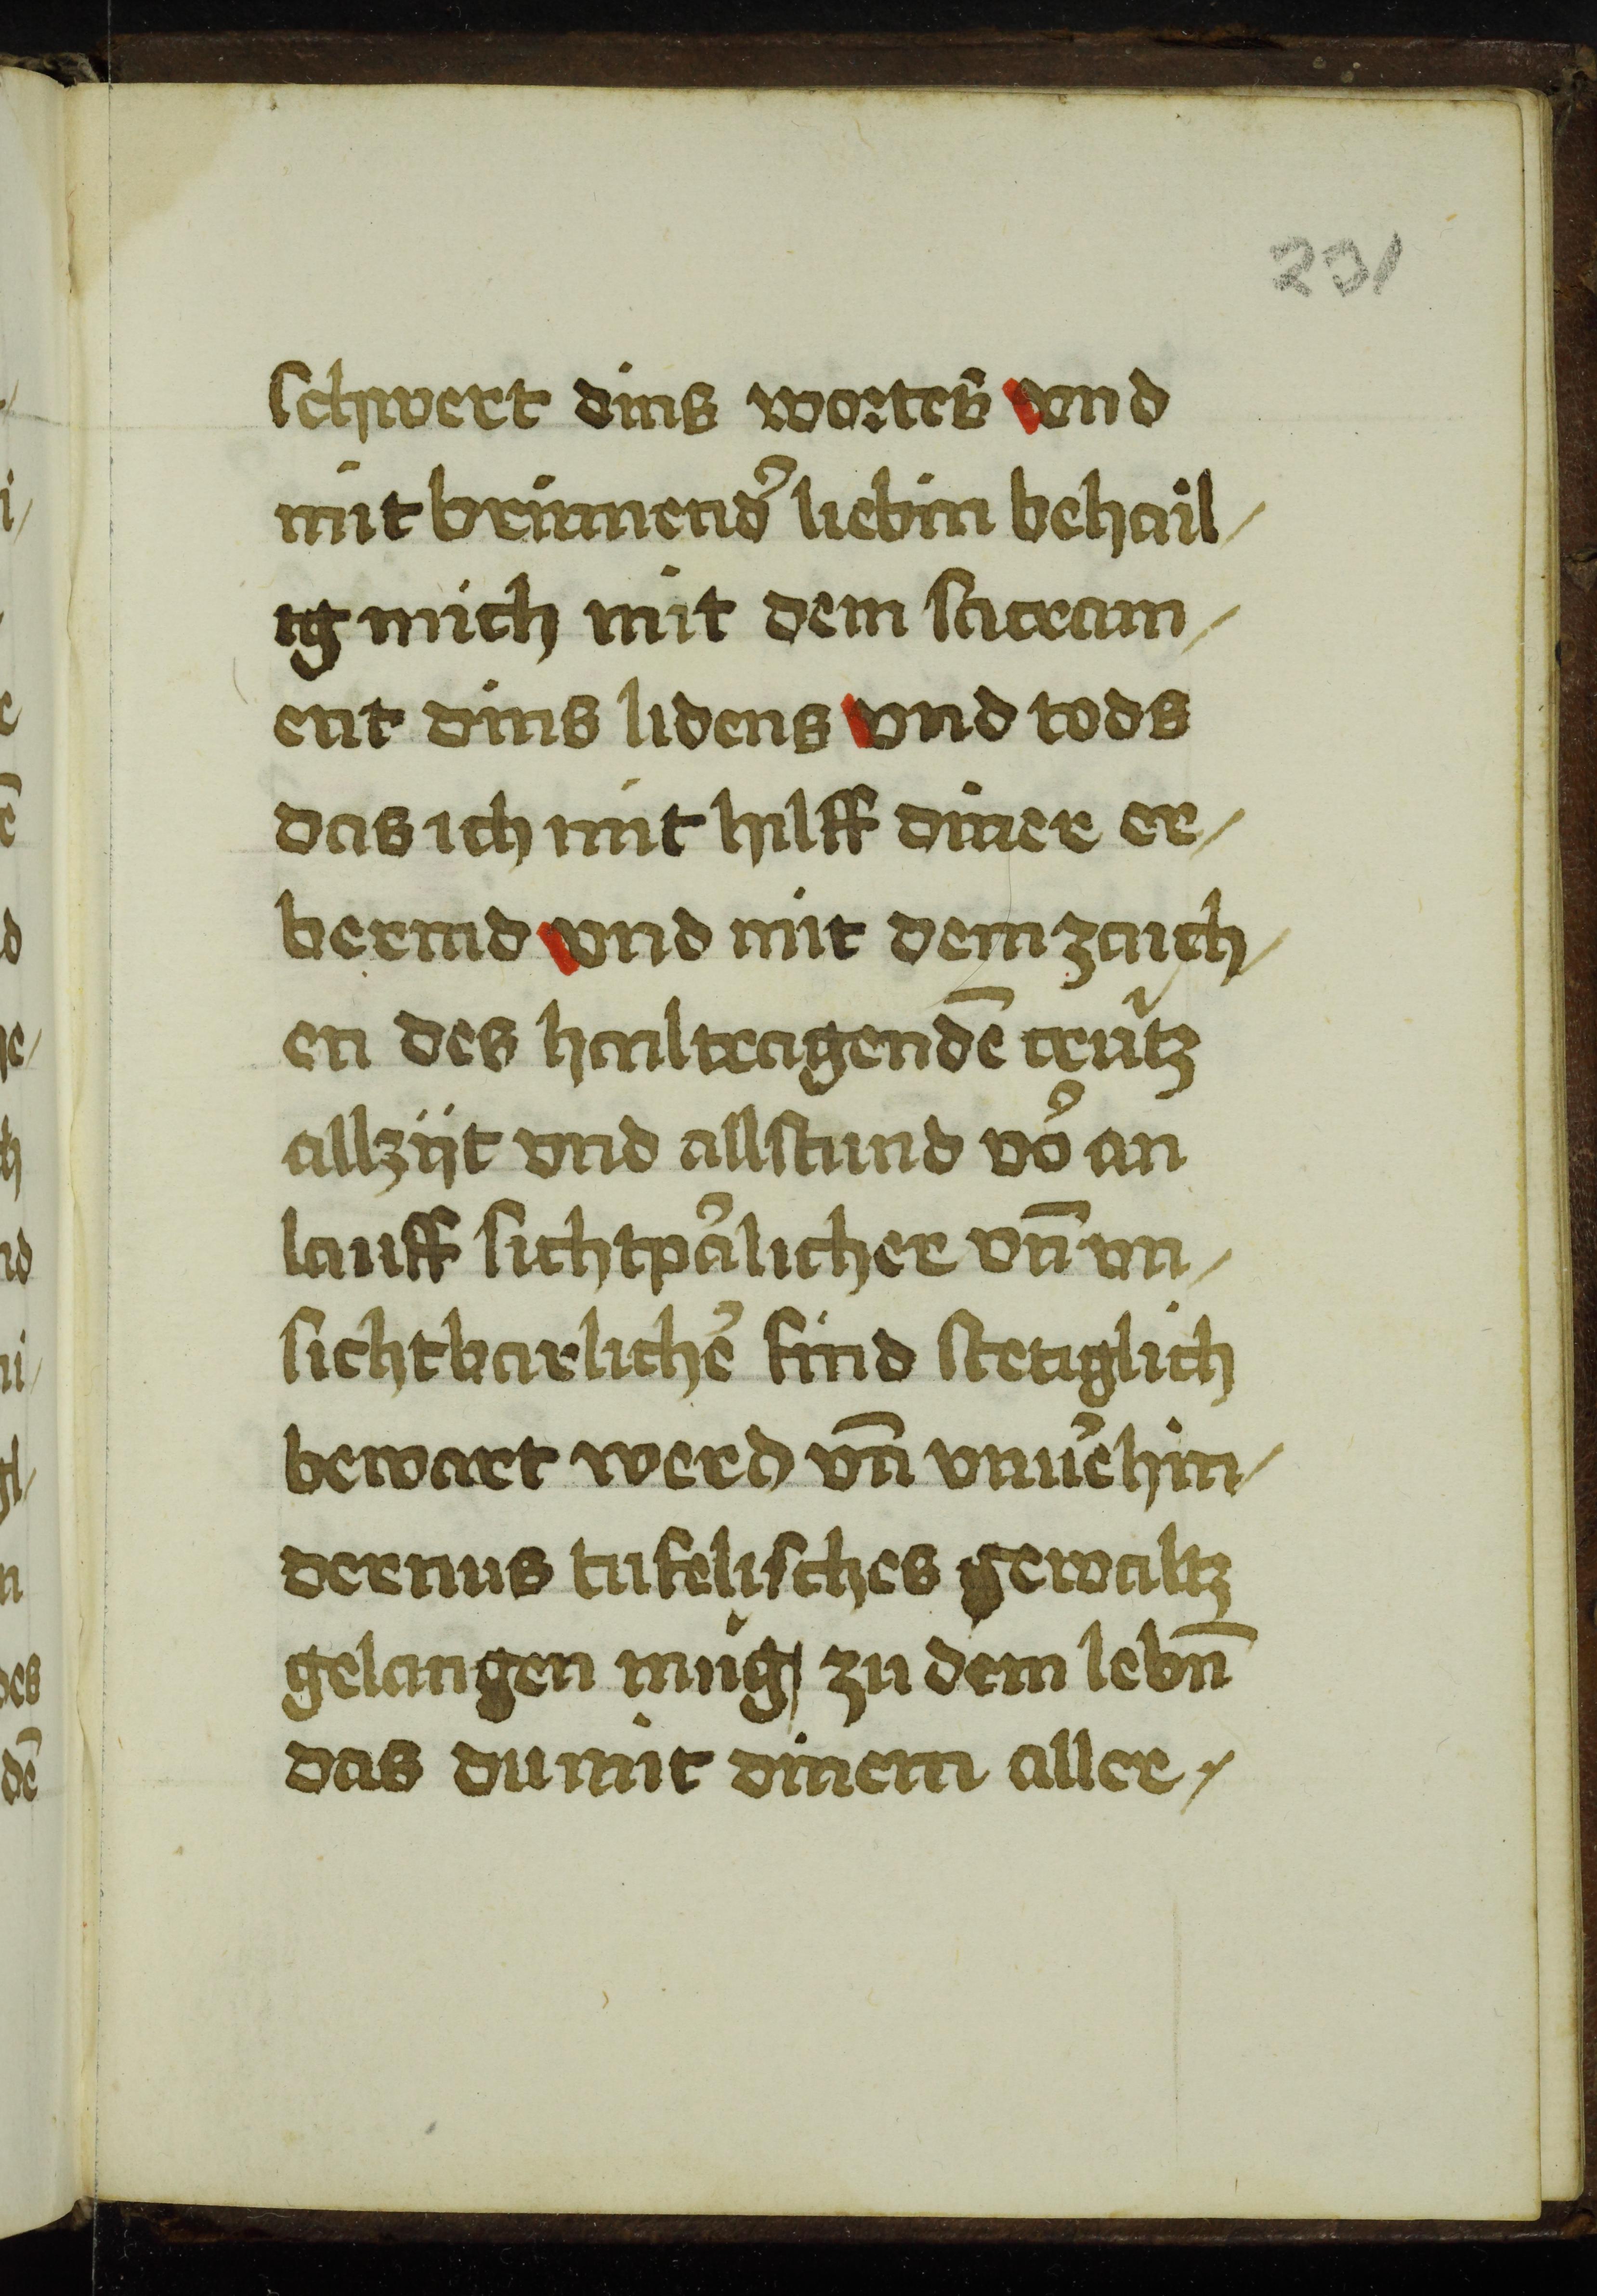 231
schwert dins wortes vnd
mit brinnend᾽ liebin behail/
ig mich mit dem sacram/
ent dins lidens vnd tods
das ich mit hilff diner er/
bermd vnd mit dem zaich/
en des hailtragendē crútz
allzijt vnd allstund vo᾽ an
lauff sichtpa᾽licher vn̄ vn/
sichtbarliche᾽ find stetiglich
bewart werd vn̄ vnue᾽hin/
dernus tufelisches gewaltz
gelangen múg zu dem lebn̄
das du mit dinem aller/